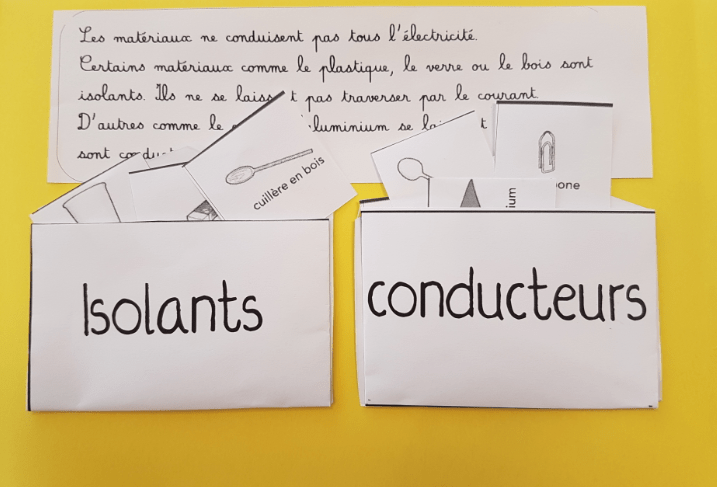 Les matériaux ne conduisent pas tous l'électricité.
Certains matériaux comme le plastique, le verre ou le bois sont
isolants. Ils ne se laiss t pas traverser par le courant
D'autres comme le luminium se t
sont
cuillère en bois
ium
bone
Isolants
conducteurs